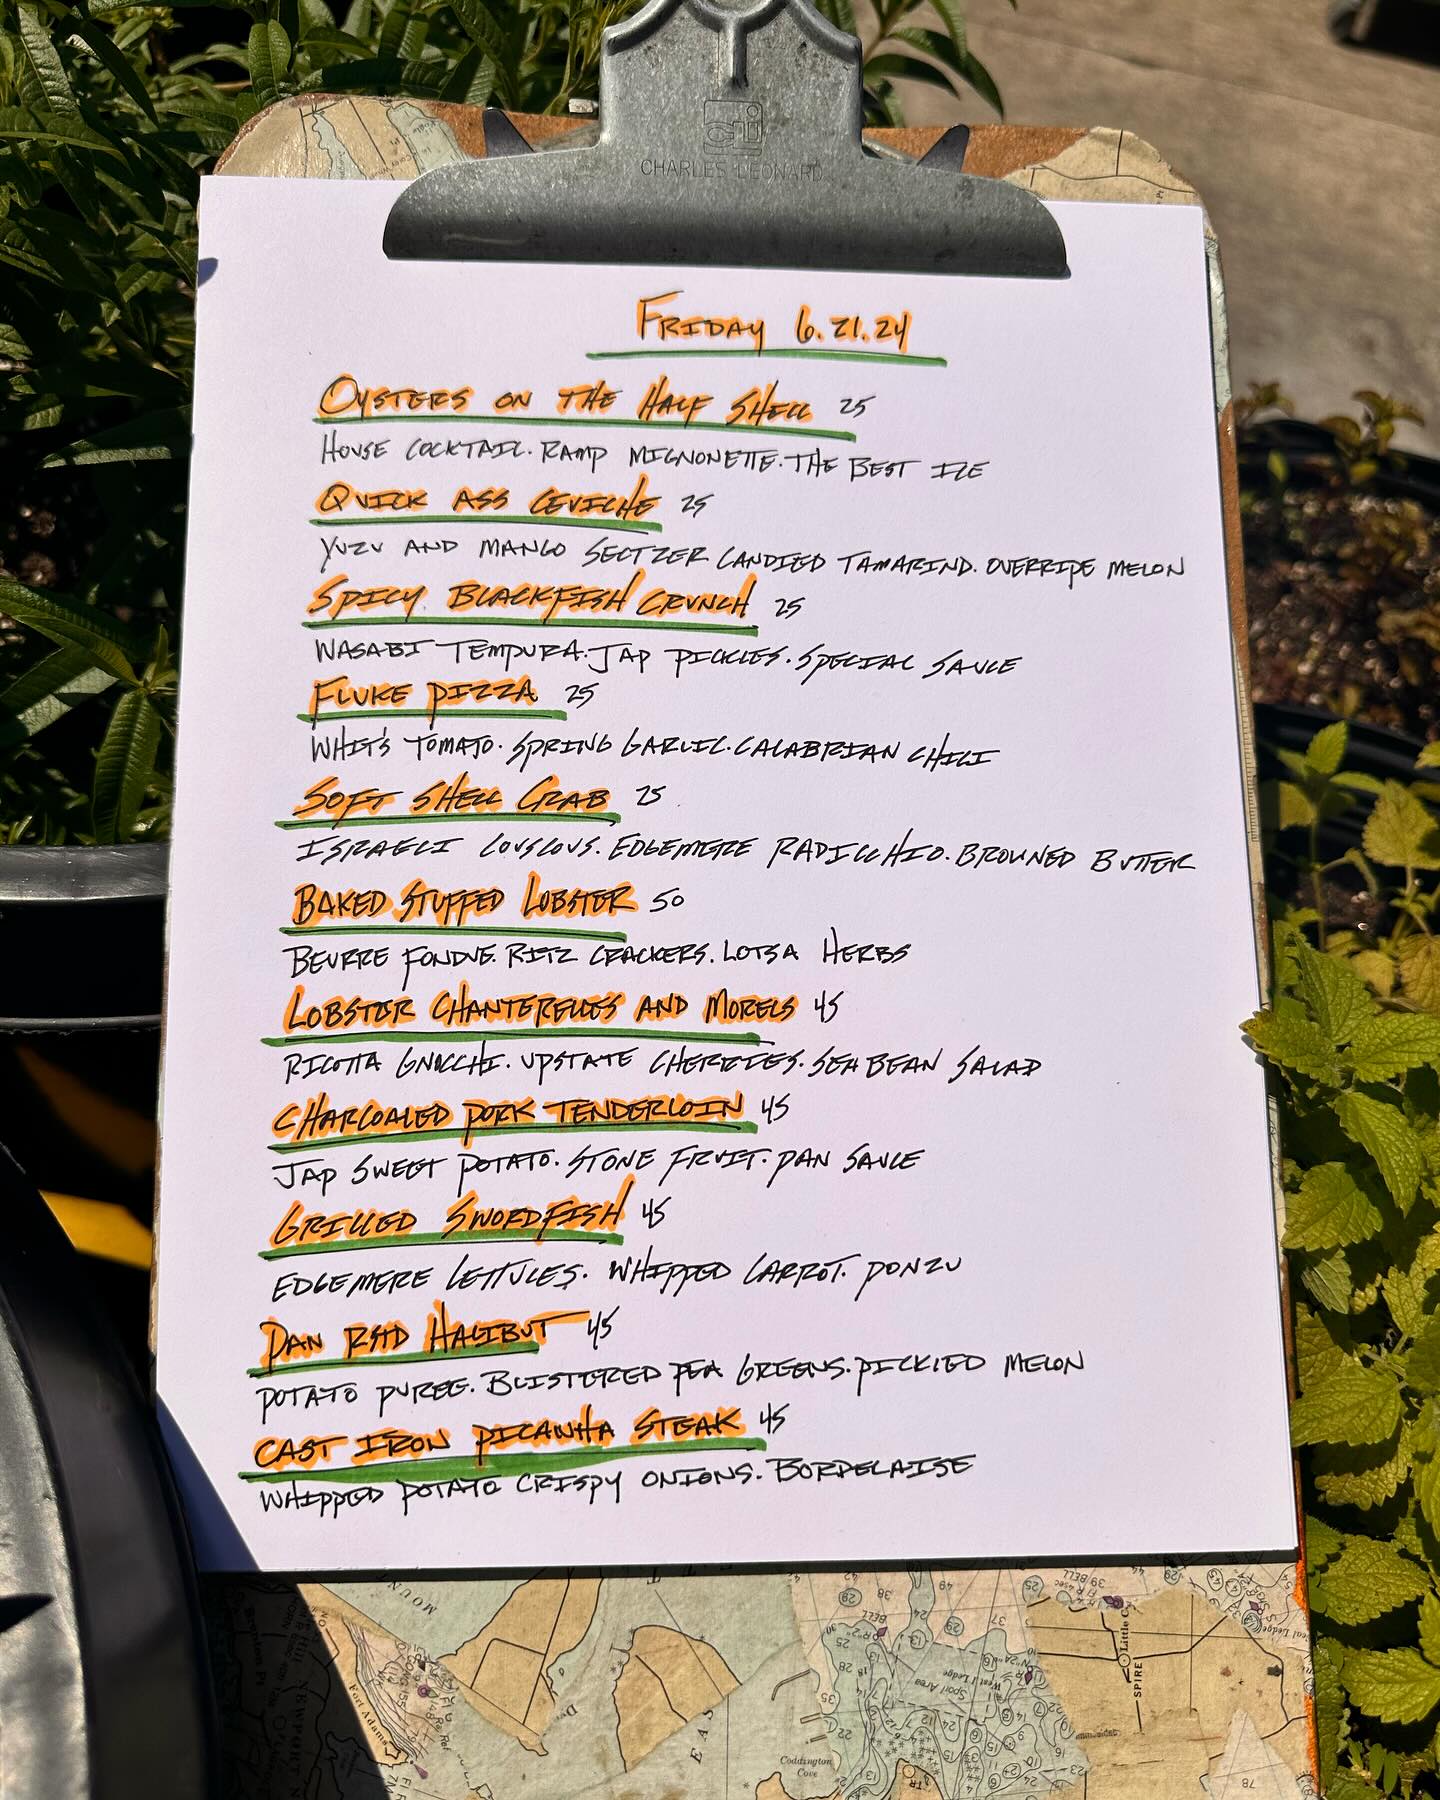 CLi
CHARLES LEONARD
FRIDAY 6.21.24
OYSTERS ON THE HALF SHELL 25
HOUSE COCKTAIL. RAMP MIGNONETTE. THE BEST ICE
QUICK ASS CEVICHE 25
YUZU AND MANGO SELTZER CANDIED TAMARIND. OVERRIPE MELON
SPICY BLACKFISH CRUNCH 25
WASABI TEMPURA. JAP PICKLES. SPECIAL SAUCE
FLUKE PIZZA 25
WHIT'S TOMATO. SPRING GARLIC. CALABRIAN CHILI
SOFT SHELL CRAB 25
ISRAELI COUSCOUS. EDGEMERE RADICCHIO. BROWNED BUTTER
BAKED STUFFED LOBSTER 50
BEURRE FONDUE. RITZ CRACKERS. LOTSA HERBS
LOBSTER CHANTERELLES AND MORELS 45
RICOTTA GNOCCHI. UPSTATE CHERRIES. SEA BEAN SALAD
CHARCOALED PORK TENDERLOIN 45
JAP SWEET POTATO. STONE FRUIT. PAN SAUCE
GRILLED SWORDFISH 45
EDGEMERE LETTUCES. WHIPPED CARROT. PONZU
PAN RSTD HALIBUT 45
POTATO PUREE. BLISTERED PEA GREENS. PICKLED MELON
CAST IRON PICANHA STEAK 45
WHIPPED POTATO CRISPY ONIONS. BORDELAISE
MOUNT
Fort Adams
NEWPORT
EAS
Coddington
Cove
BELL
39 BELL
Spoil Area
West Ledge
SPIRE
78